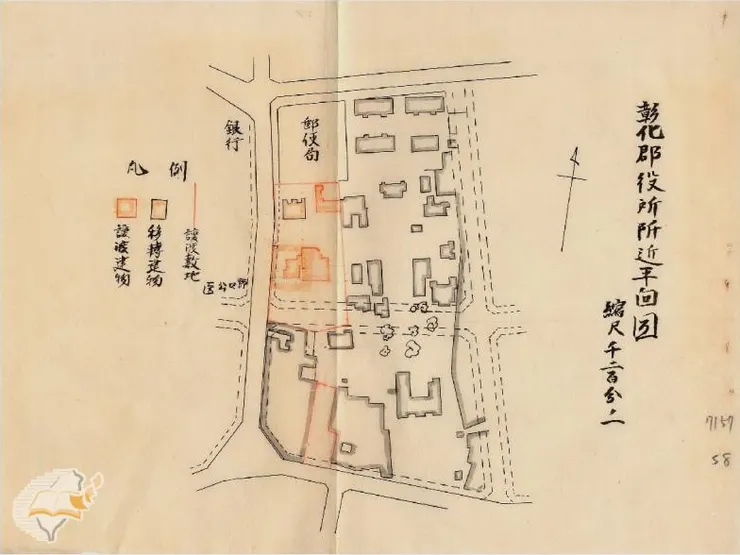 彰化郡役所附近平面圖
縮尺千二百分ノ一
郵便局
銀行
凡例
讓渡敷地
移轉建物
讓渡建物
7157
58